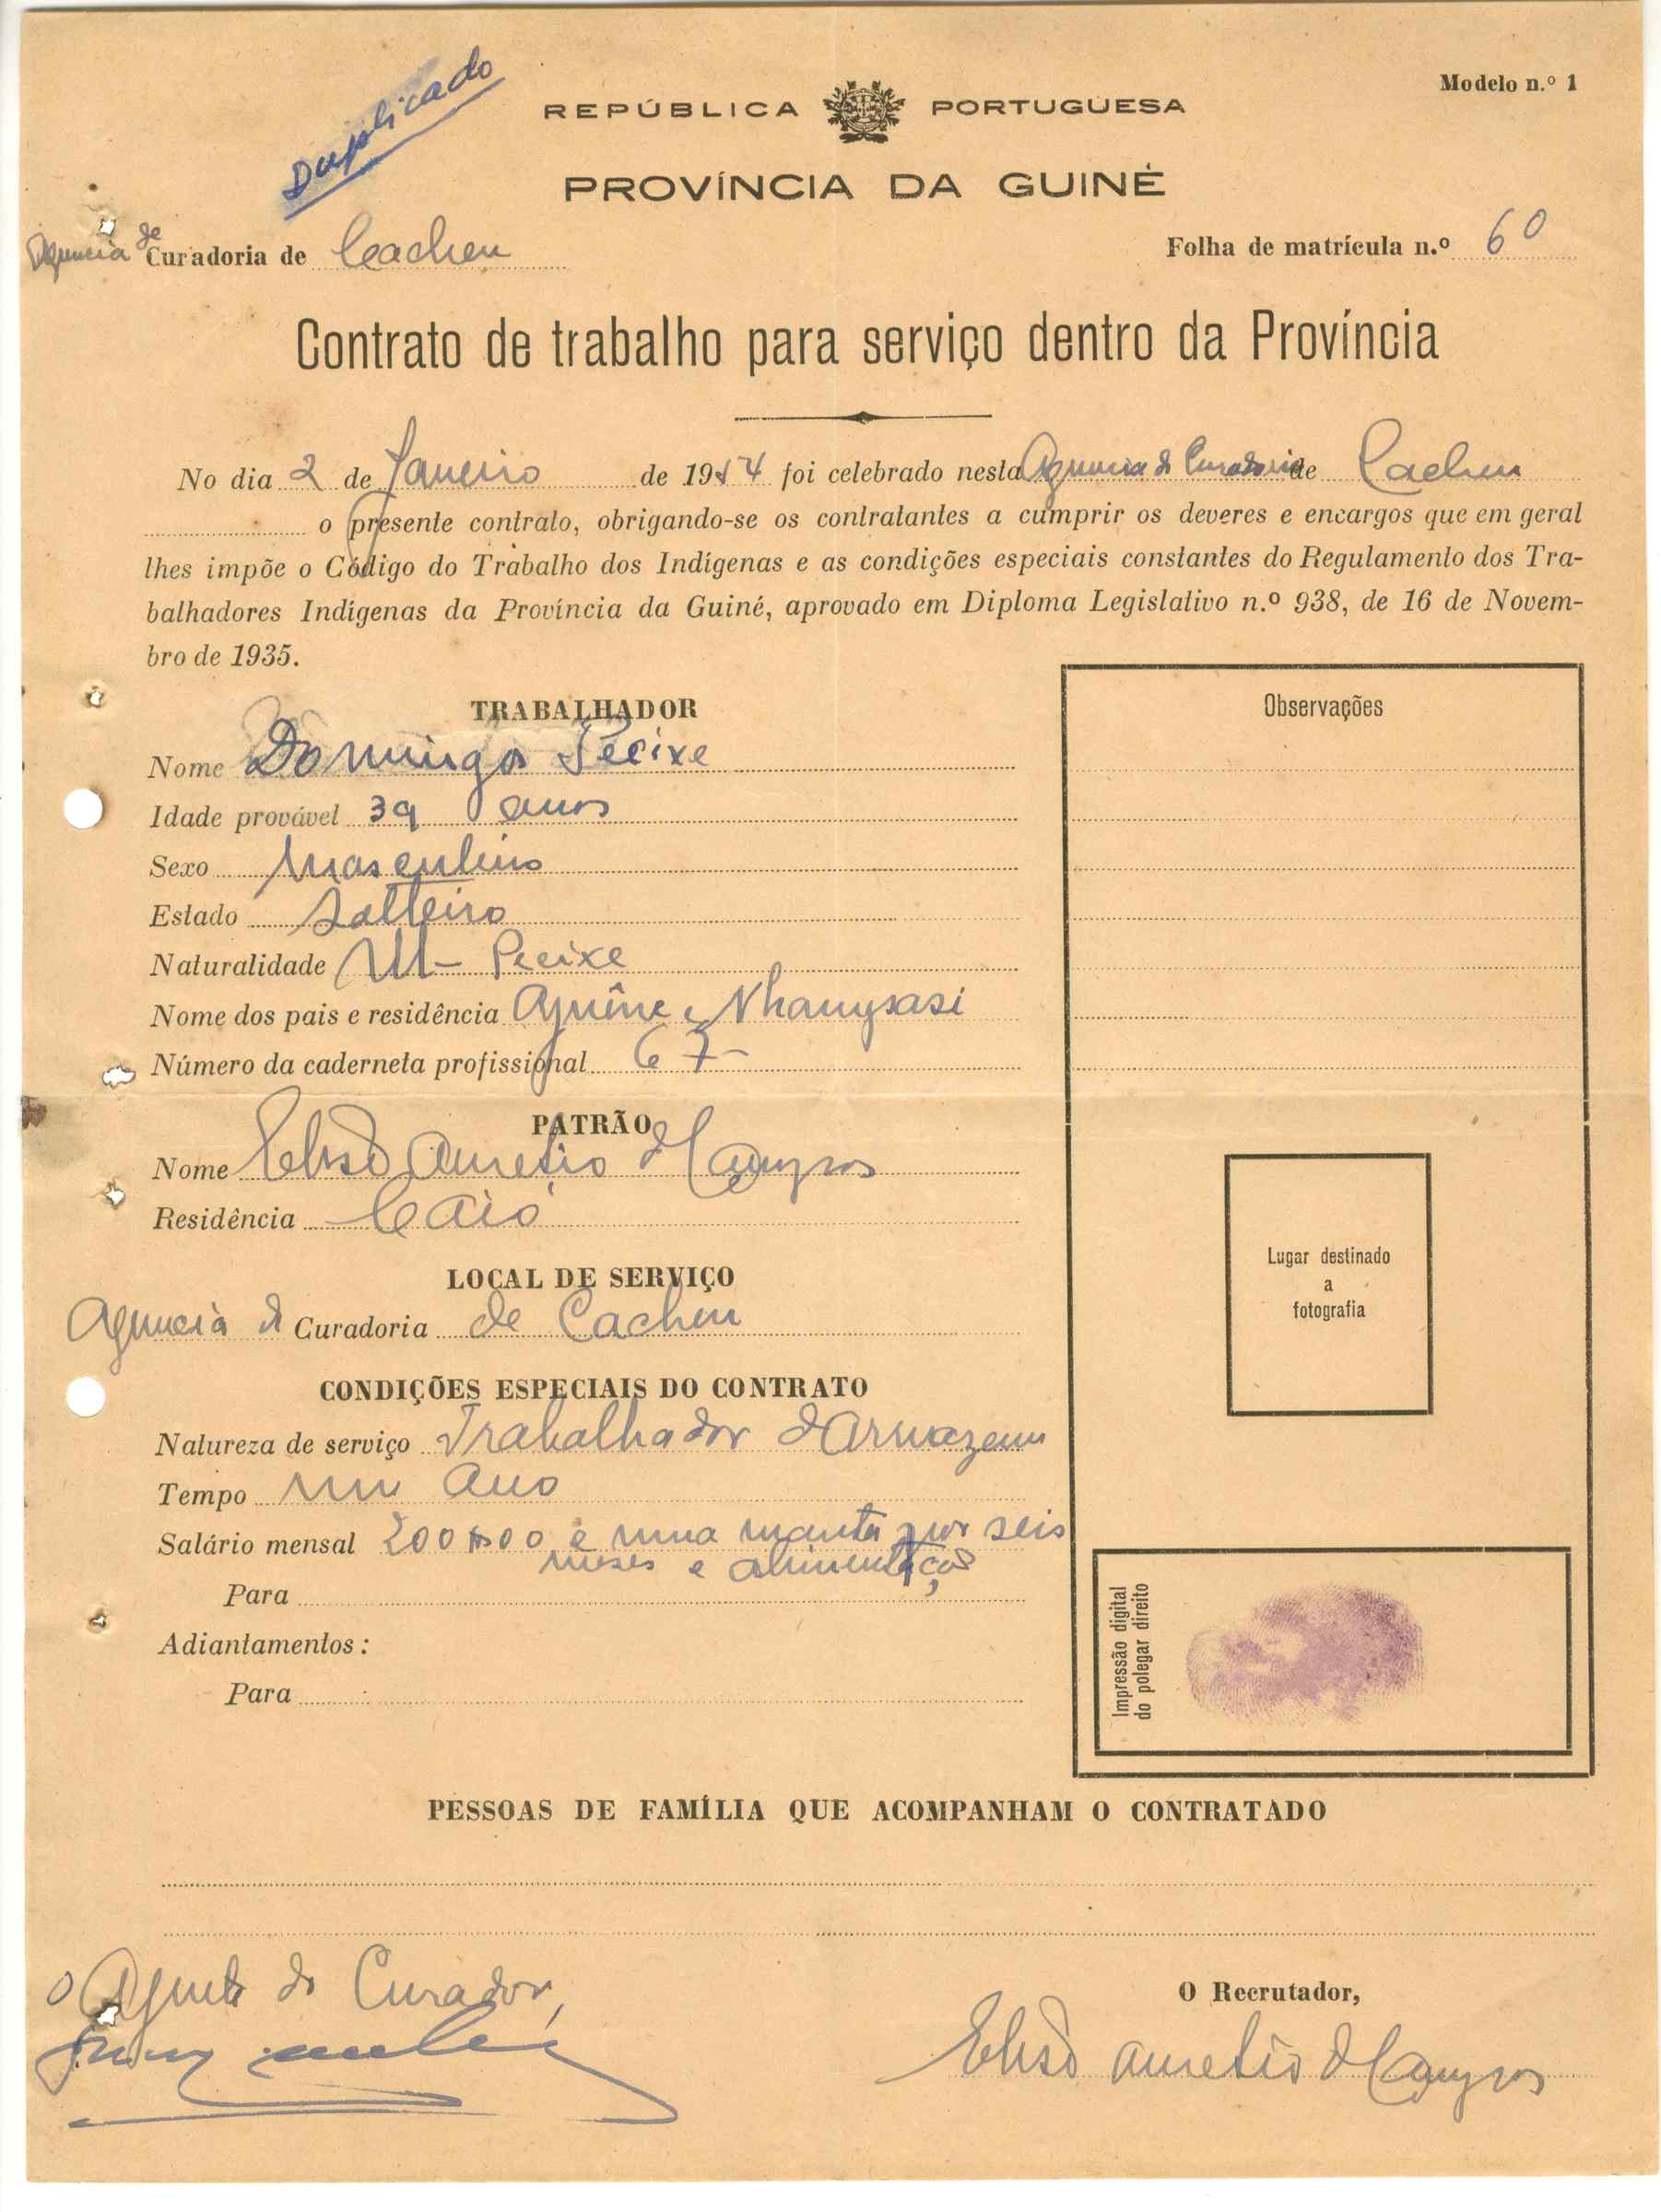 Duplicado
Modelo n.º 1
REPÚBLICA PORTUGUESA
PROVÍNCIA DA GUINÉ
Agencia de Curadoria de Cacheu
Folha de matrícula n.º 60
Contrato de trabalho para serviço dentro da Província
No dia 2 de Janeiro de 1954 foi celebrado nesta Agencia de Curadoria de Cacheu
o presente contrato, obrigando-se os contratantes a cumprir os deveres e encargos que em geral
lhes impõe o Código do Trabalho dos Indígenas e as condições especiais constantes do Regulamento dos Tra-
balhadores Indígenas da Província da Guiné, aprovado em Diploma Legislativo n.º 938, de 16 de Novem-
bro de 1935.
TRABALHADOR
Nome Domingos Pecixe
Idade provável 39 anos
Sexo Masculino
Estado Solteiro
Naturalidade Pecixe
Nome dos pais e residência
Número da caderneta profissional 67-
PATRÃO
Nome Elisio Aurelio d Campos
Residência Caió
LOCAL DE SERVIÇO
Agencia d Curadoria de Cacheu
CONDIÇÕES ESPECIAIS DO CONTRATO
Natureza de serviço Trabalhador d Armazem
Tempo um ano
Salário mensal 200$00 e uma manta por seis
meses e alimentação
Para
Adiantamentos :
Para
Observações
Lugar destinado
a
fotografia
Impressão digital
do polegar direito
PESSOAS DE FAMÍLIA QUE ACOMPANHAM O CONTRATADO
O Agente do Curador,
O Recrutador,
Elisio Aurelio d Campos